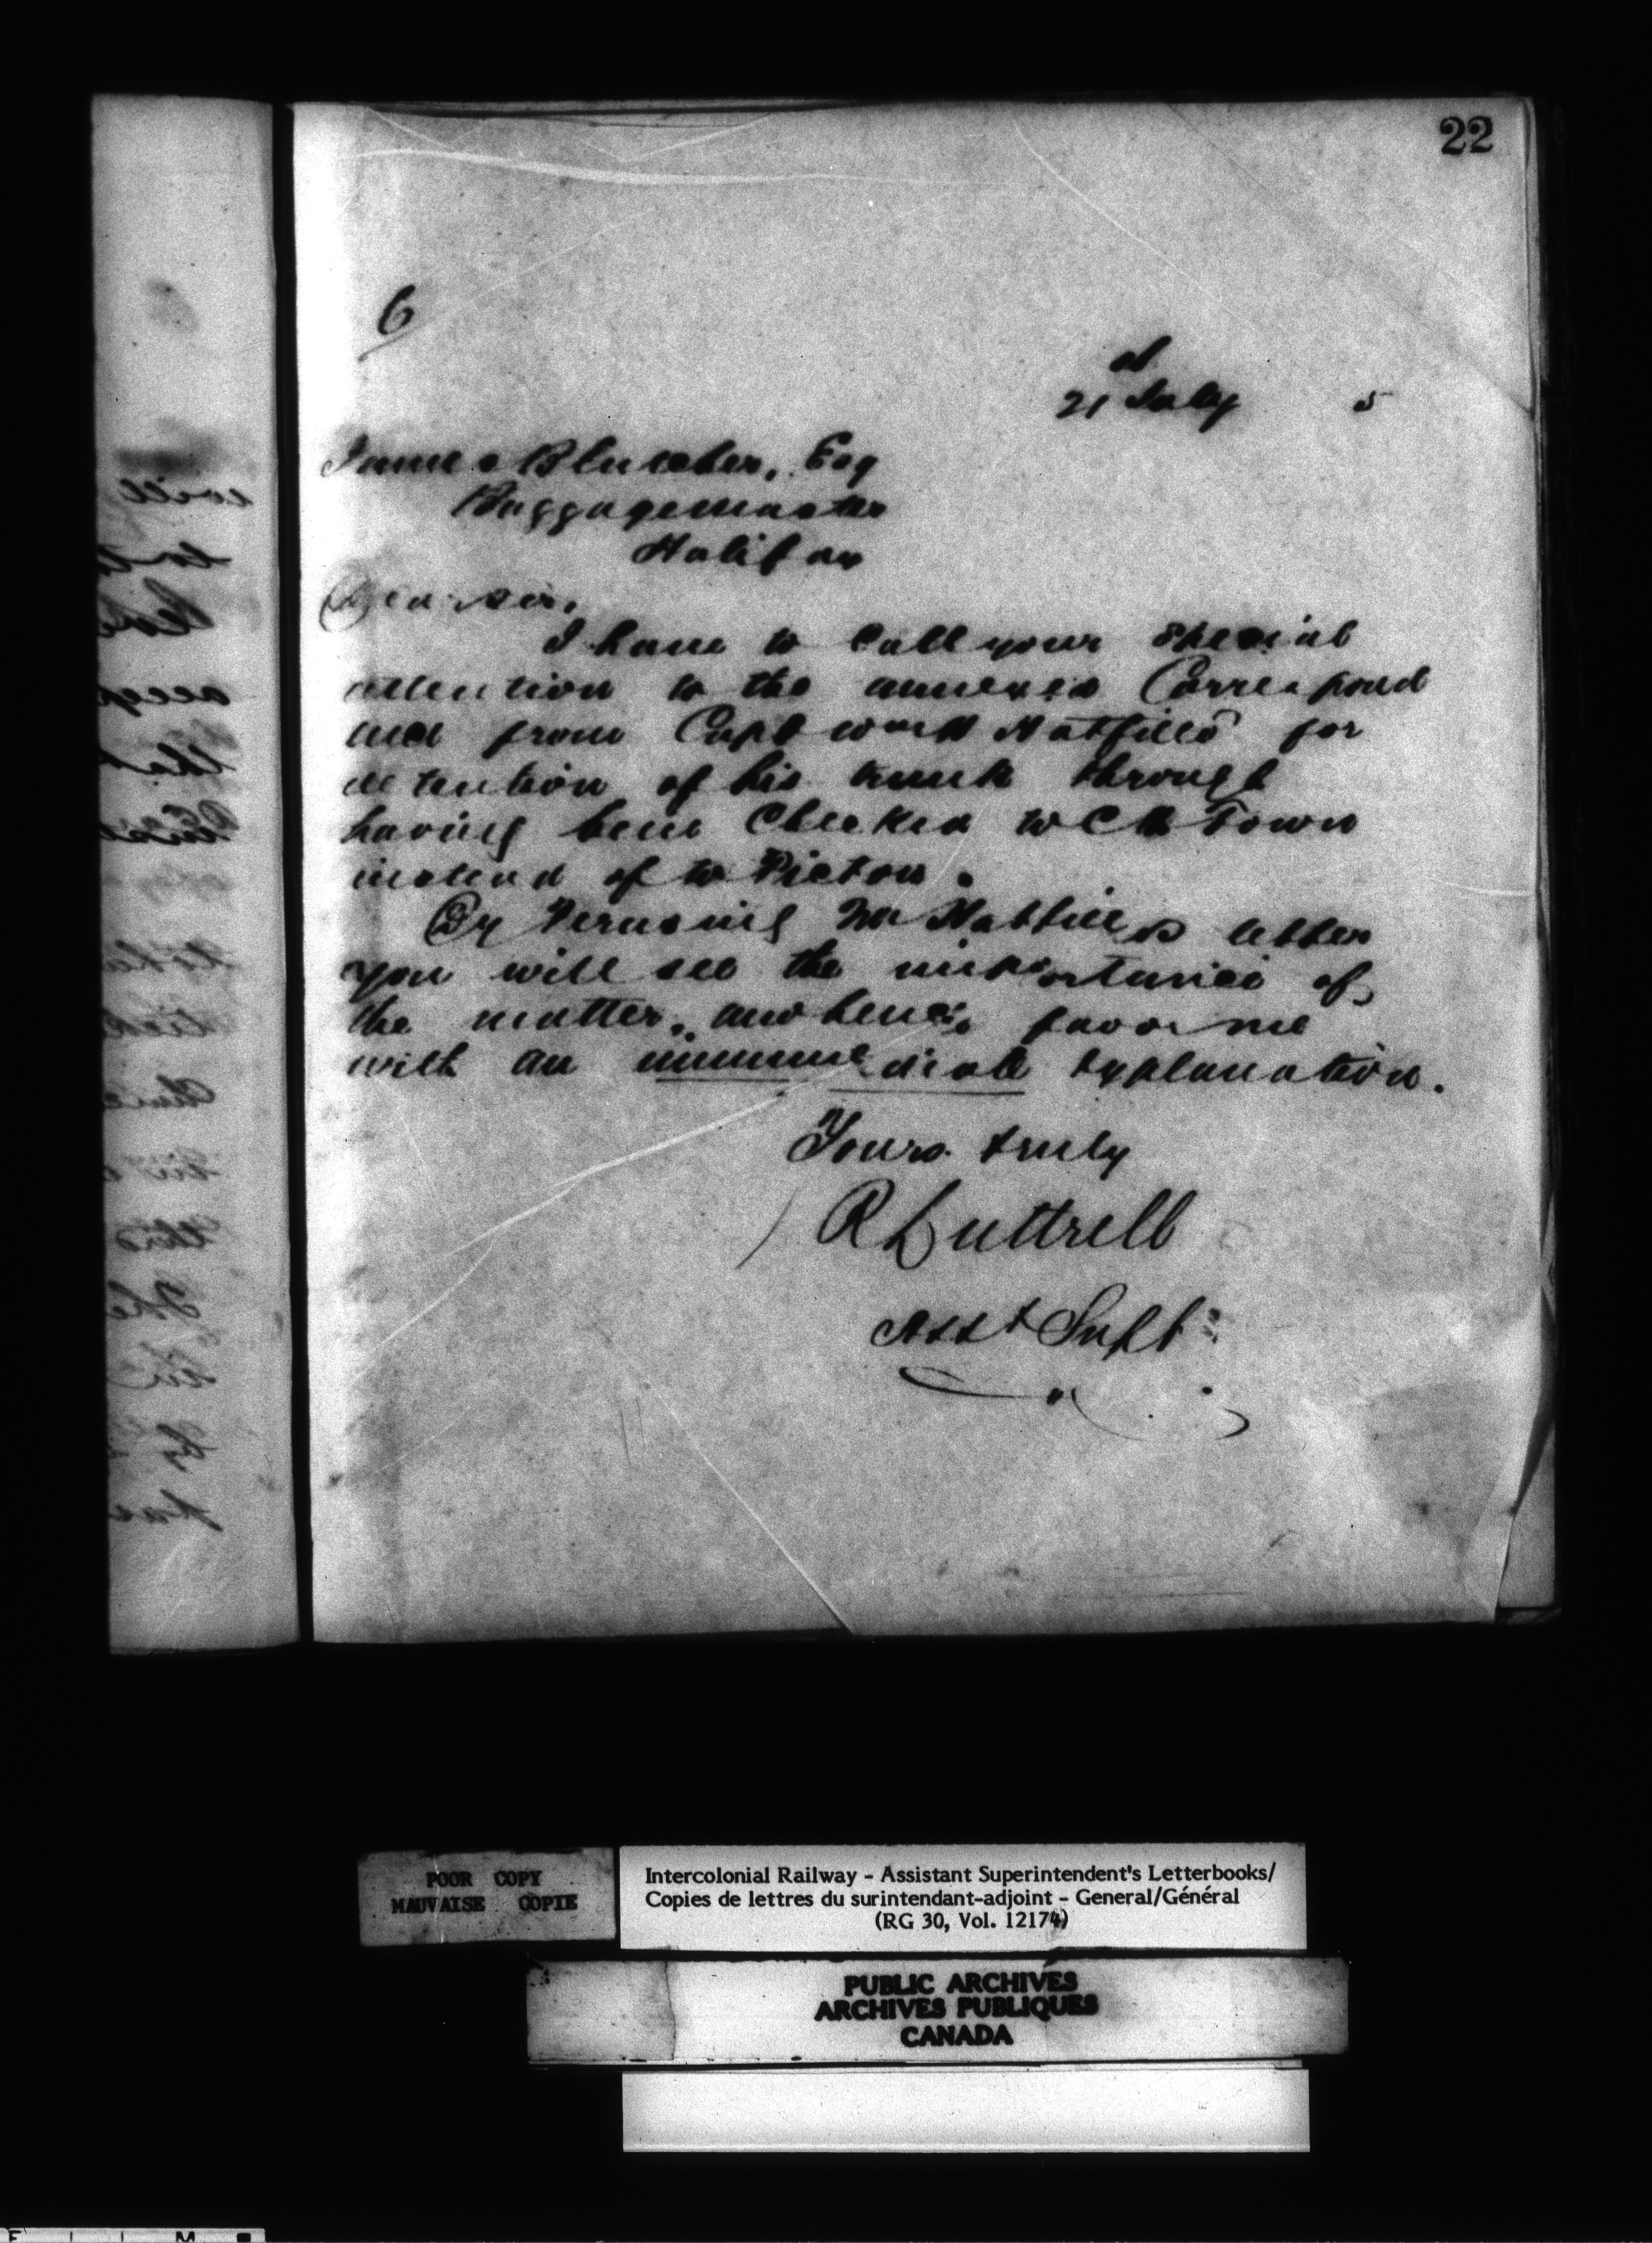 22
6
21st July 5
James Blucher, Esq
Baggagemaster
Halifax
Dear Sir,
I have to call your special
attention to the annexed Correspond
ence from Capt Hatfield for
detention of his trunk through
having been Checked to Ch Town
instead of to Pictou.
By Perusing Mr Hatfields letter
you will see the importance of
the matter, and hence favor me
with an immmediate explanation.
Yours truly
R Luttrell
Asst Supt
POOR COPY
MAUVAISE COPIE
Intercolonial Railway - Assistant Superintendent's Letterbooks/
Copies de lettres du surintendant-adjoint - General/Général
(RG 30, Vol. 12174)
PUBLIC ARCHIVES
ARCHIVES PUBLIQUES
CANADA